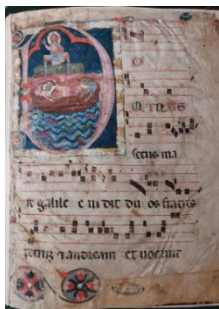 D O
MINUS
secus ma
re galile e uidit du os fratres
petrum ⁊ andream et uocauit